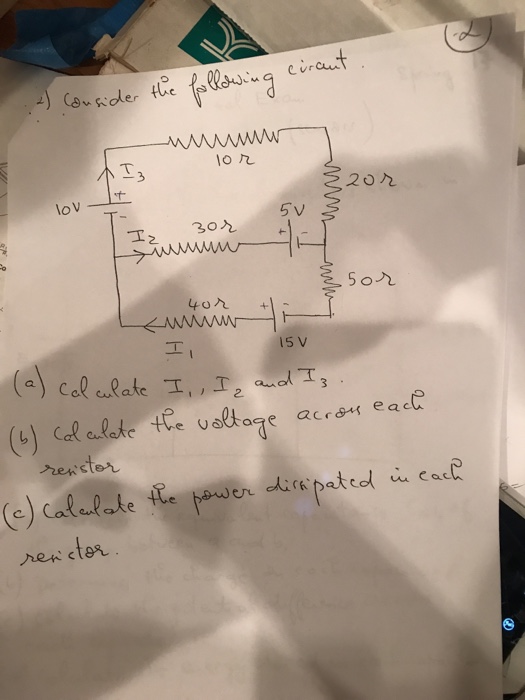 (2)
2) Consider the following circuit.
10Ω
I3
+
20Ω
10V
-
5V
I2
30Ω
+ -
50Ω
40Ω
+ -
I1
15V
(a) Calculate I1, I2 and I3.
(b) Calculate the voltage across each
resistor
(c) Calculate the power dissipated in each
resistor.